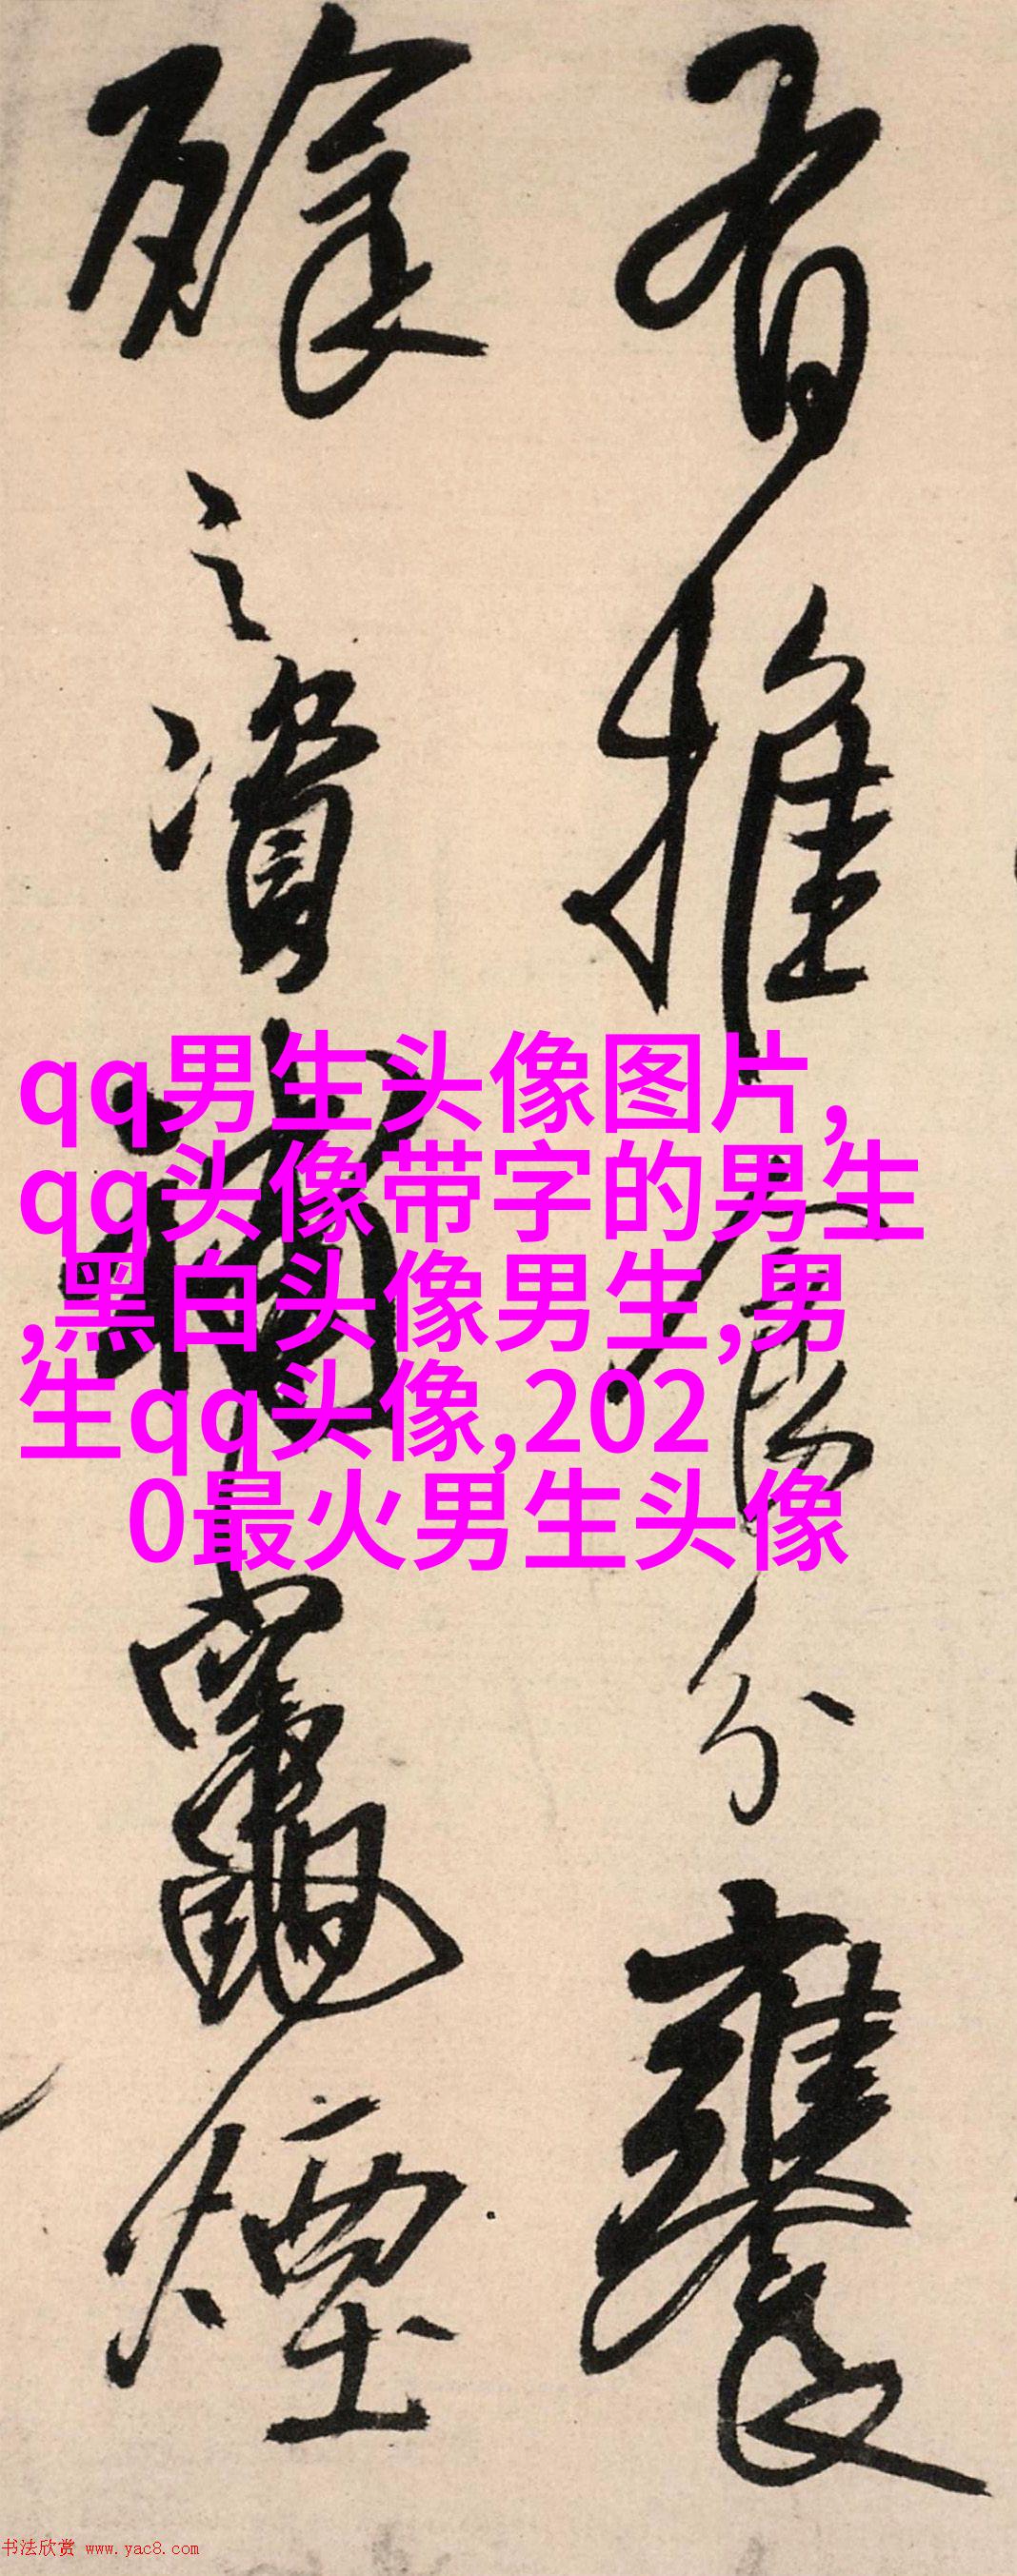 推食分饔
之資竈煙
qq男生头像图片,
qq头像带字的男生
,黑白头像男生,男
生qq头像,202
0最火男生头像
书法欣赏 www.yac8.com